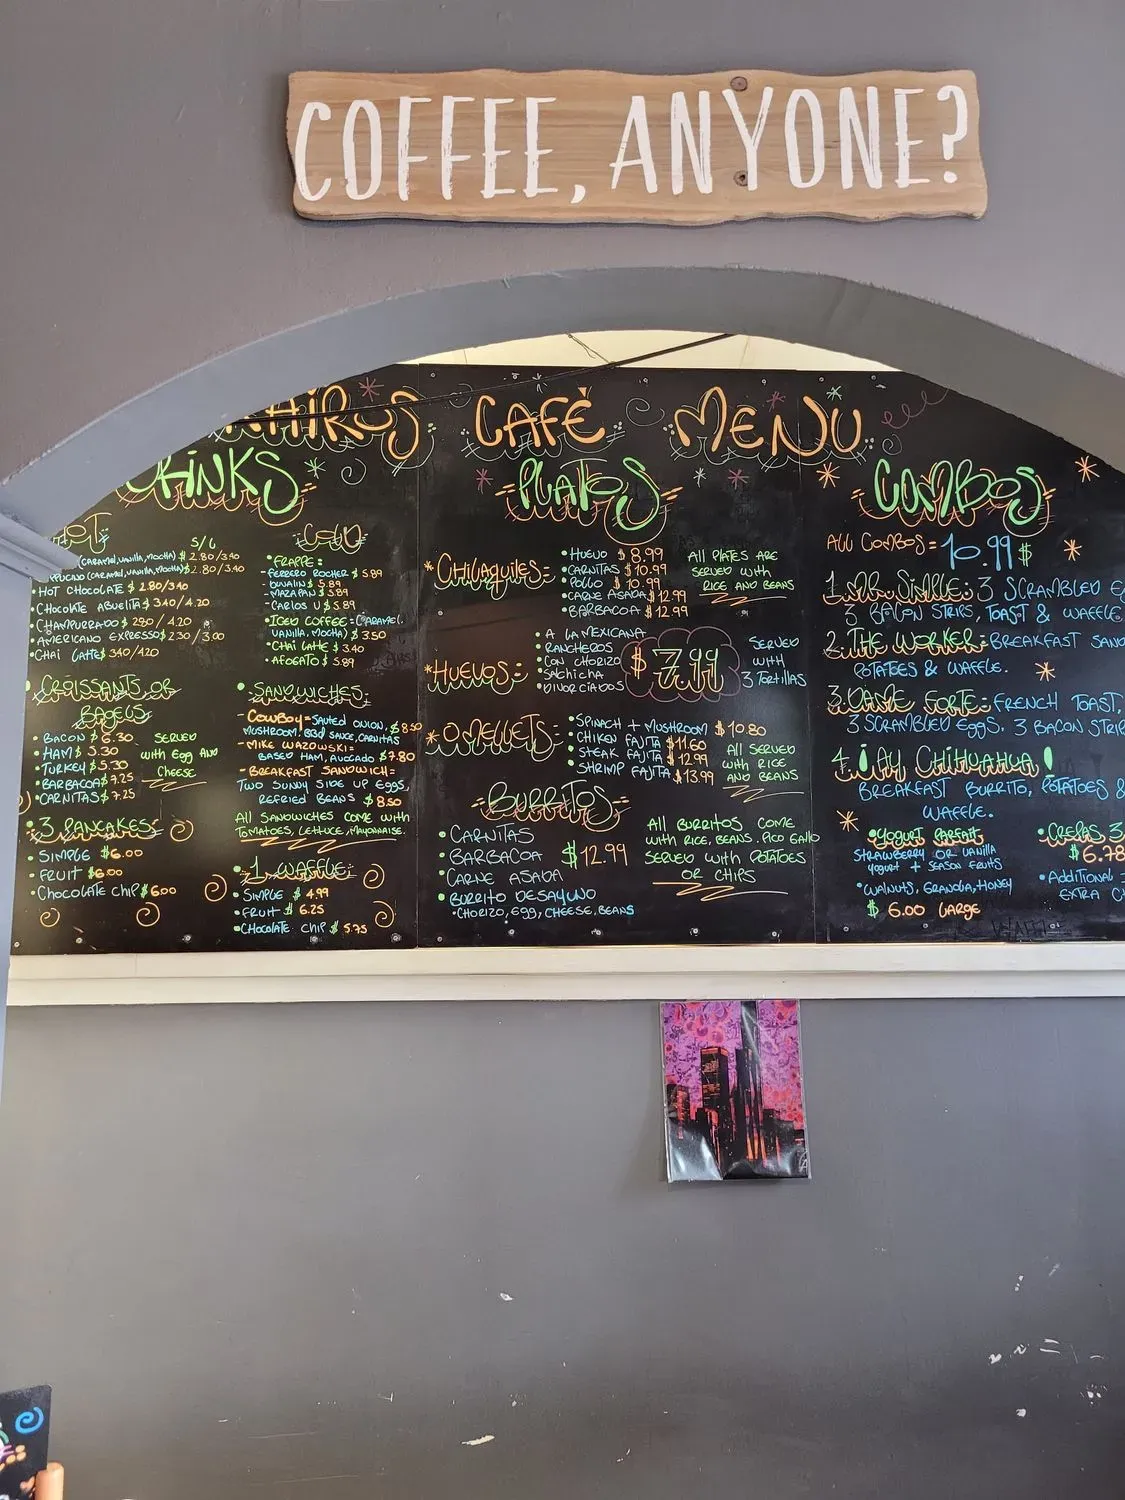 COFFEE, ANYONE?
CAFÉ MENU
HOT
S/L
(CARAMEL, VANILLA, MOCHA) $ 2.80/3.40
(CARAMEL, VANILLA, MOCHA) $ 2.80/3.40
•HOT CHOCOLATE $ 2.80/3.40
•CHOCOLATE ABUELITA $ 3.40/4.20
•CHAMPURRADO $ 2.90/4.20
•AMERICANO EXPRESSO $ 2.30/3.00
•CHAI LATTE $ 3.40/4.20
COLD
•FRAPPE:
-FERRERO ROCHER $ 5.89
$ 5.89
-MAZAPAN $ 5.89
-CARLOS V $ 5.89
•ICED COFFEE = (CARAMEL,
VANILLA, MOCHA) $ 3.50
•CHAI LATTE $ 3.40
•AFOGATO $ 5.89
CROISSANTS OR
BAGELS
•BACON $ 6.30
•HAM $ 5.30
•TURKEY $ 5.30
•BARBACOA $ 7.25
•CARNITAS $ 7.25
SERVED
with EGG AND
CHEESE
•3 PANCAKES
•SIMPLE $6.00
•FRUIT $6.00
•CHOCOLATE CHIP $ 6.00
•SANDWICHES:
-COWBOY = SAUTED ONION, $ 8.50
MUSHROOM, BBQ SAUCE, CARNITAS
-MIKE WAZOWSKI=
BASED HAM, AVOCADO $ 7.80
-BREAKFAST SANDWICH=
TWO SUNNY SIDE UP EGGS,
REFRIED BEANS $ 8.50
All SANDWICHES COME with
TOMATOES, LETTUCE, MAYONNAISE.
•1 WAFFLE:
SIMPLE $ 4.99
•FRUIT $ 6.25
•CHOCOLATE CHIP $ 5.75
PLATOS
*CHILAQUILES=
•HUEVO $ 8.99
•CARNITAS $10.99
•POLLO $ 10.99
•CARNE ASADA $12.99
•BARBACOA $12.99
All PLATES ARE
SERVED with
RICE AND BEANS
*HUEVOS=
•A LA MEXICANA
•RANCHEROS
•CON CHORIZO
•SALCHICHA
•DIVORCIADOS
$ 7.99
SERVED
WITH
3 TORTILLAS
*OMELLETS=
•SPINACH + MUSHROOM $10.80
•CHIKEN FAJITA $11.60
•STEAK FAJITA $12.99
•SHRIMP FAJITA $13.99
All SERVED
with RICE
AND BEANS
BURRITOS
•CARNITAS
•BARBACOA
•CARNE ASADA
$12.99
•BURRITO DESAYUNO
•CHORIZO, EGG, CHEESE, BEANS
All BURRITOS COME
with RICE, BEANS, PICO GALLO
SERVED with POTATOES
OR CHIPS
COMBOS
All COMBOS = 10.99$
3 SCRAMBLED
3 BACON STRIPS, TOAST & WAFFLE.
2.THE WORKER: BREAKFAST
POTATOES & WAFFLE.
FORTE: FRENCH TOAST,
3 SCRAMBLED EGGS, 3 BACON
4.¡AY CHIHUAHUA!
BREAKFAST BURRITO, POTATOES &
WAFFLE.
•YOGURT PARFAIT
STRAWBERRY OR VANILLA
YOGURT + SEASON FRUITS
•WALNUTS, GRANOLA, HONEY
$ 6.00 LARGE
•CREPAS 3
$6.78
•ADDITIONAL
EXTRA